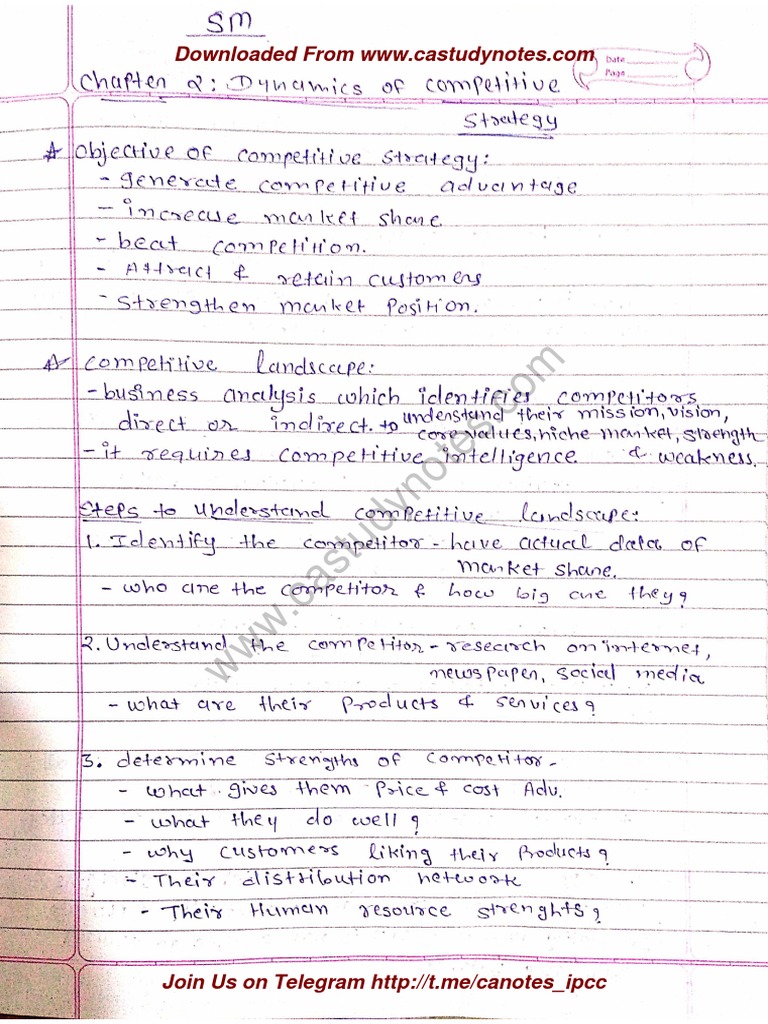 SM
Downloaded From www.castudynotes.com
Date
Page
Chapter 2: Dynamics of competitive
Strategy
Objective of competitive strategy:
- generate competitive advantage
- increase market share
- beat competition.
- Attract & retain customers
- Strengthen market Position.
competitive landscape:
- business analysis which identifies competitors
direct or indirect. to understand their mission, vision,
core values, niche market, strength
- it requires competitive intelligence & weakness.
Steps to understand competitive landscape:
1. Identify the competitor - have actual data of
market share.
- who are the competitor & how big are they?
2. Understand the competitor - research on internet,
newspaper, social media
- what are their Products & services?
3. determine strengths of competitor -
- what gives them Price & cost Adv.
- what they do well?
- why customers liking their Products?
- Their distribution network
- Their Human resource strenghts?
www.castudynotes.com
Join Us on Telegram http://t.me/canotes_ipcc